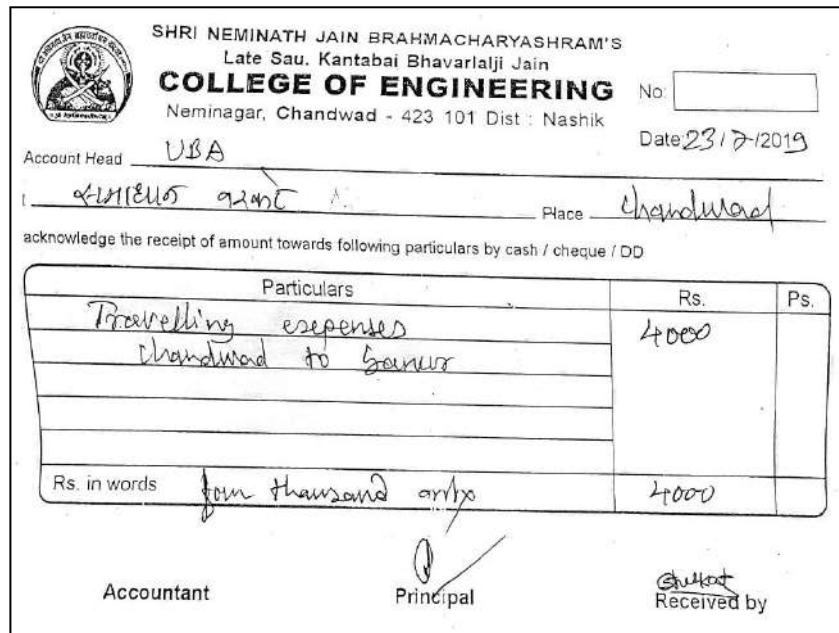 SHRI NEMINATH JAIN BRAHMACHARYASHRAM'S
Late Sau. Kantabai Bhavarlalji Jain
COLLEGE OF ENGINEERING
Neminagar, Chandwad - 423 101 Dist : Nashik
No:
Date: 23/7/2019
Account Head UBA
I Place Chandwad
acknowledge the receipt of amount towards following particulars by cash / cheque / DD
Particulars Rs. Ps.
Travelling esepenses 4000
Chandwad to
Rs. in words four thousand only 4000
Accountant Principal Received by